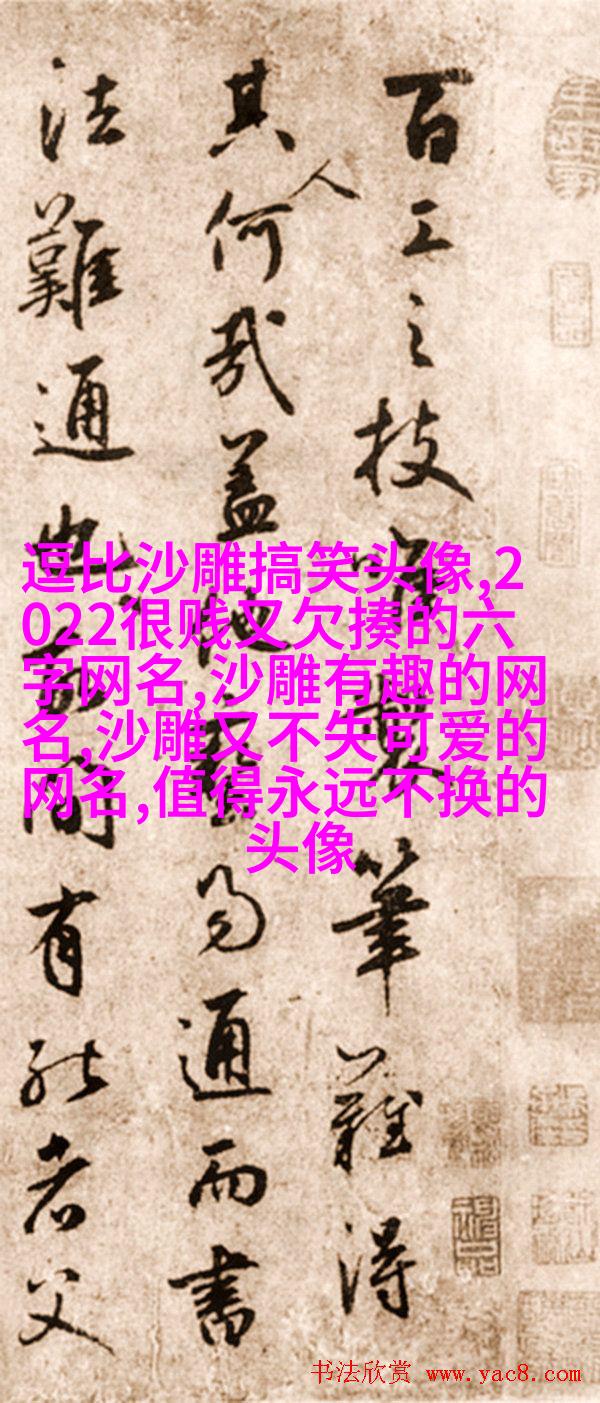 百工之技製筆難得
其人何哉蓋他易通而書
法難通也間有能者父
逗比沙雕搞笑头像,2
022很贱又欠揍的六
字网名,沙雕有趣的网
名,沙雕又不失可爱的
网名,值得永远不换的
头像
书法欣赏 www.yac8.com